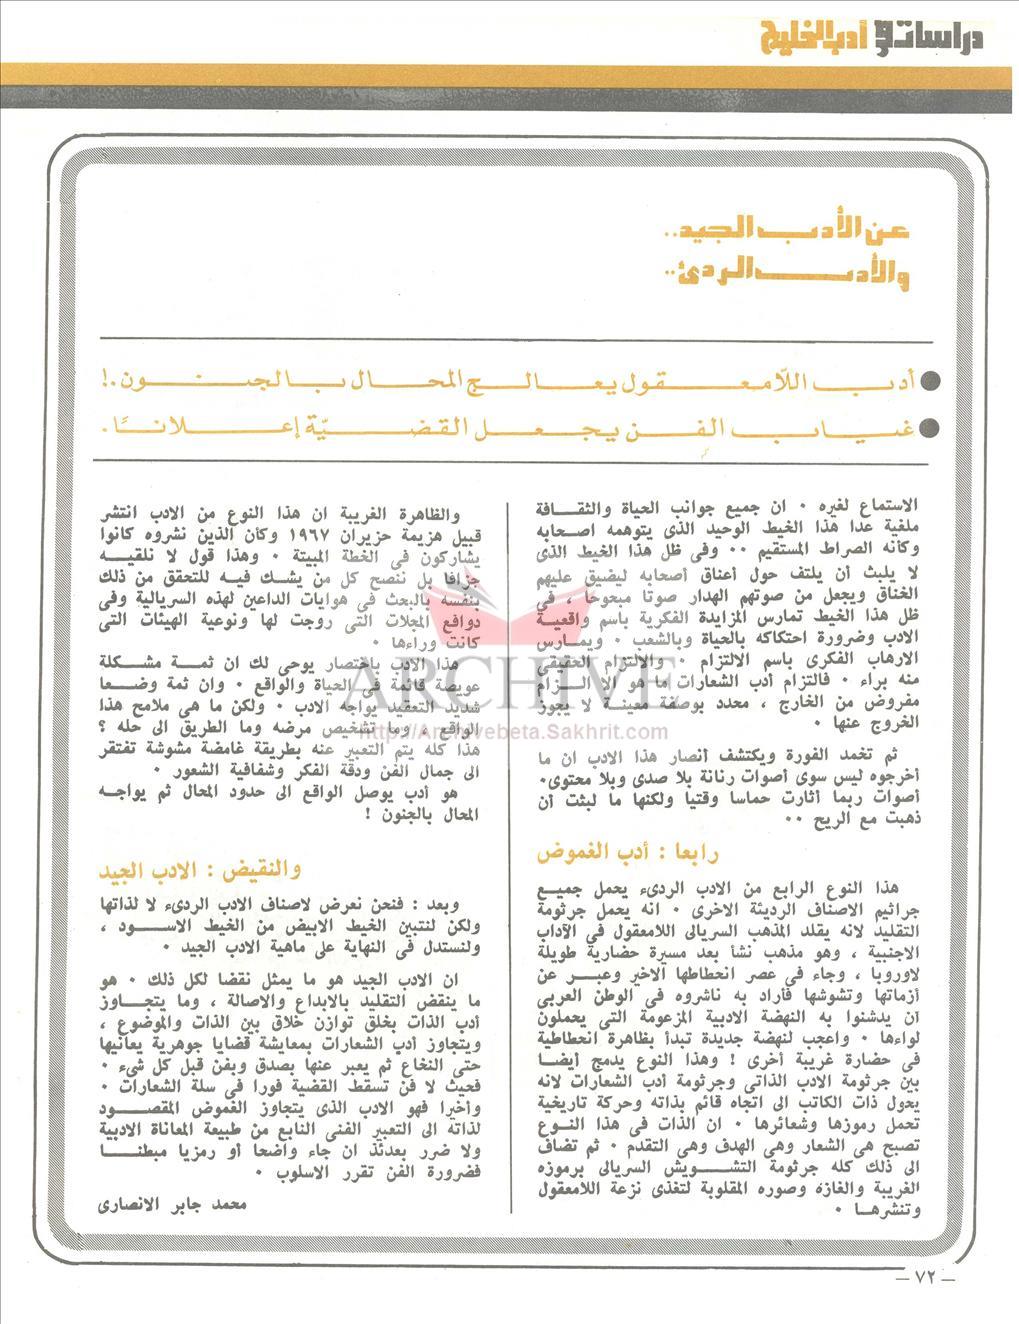 دراسات في أدب الخليج
عن الأدب الجيد..
والأدب الردئ..
● أدب اللّامعقول يعالج المحال بالجنون.!
● غياب الفن يجعل القضيّة إعلانًا.
الاستماع لغيره ٠ ان جميع جوانب الحياة والثقافة
ملغية عدا هذا الخيط الوحيد الذى يتوهمه اصحابه
وكأنه الصراط المستقيم ٠٠ وفى ظل هذا الخيط الذى
لا يلبث أن يلتف حول أعناق أصحابه ليضيق عليهم
الخناق ويجعل من صوتهم الهدار صوتا مبحوحا ، في
ظل هذا الخيط تمارس المزايدة الفكرية باسم واقعية
الادب وضرورة احتكاكه بالحياة وبالشعب ٠ ويمارس
الارهاب الفكرى باسم الالتزام ٠ والالتزام الحقيقى
منه براء ٠ فالتزام أدب الشعارات ما هو الا الزام
مفروض من الخارج ، محدد بوصفة معينة لا يجوز
الخروج عنها ٠
ثم تخمد الفورة ويكتشف أنصار هذا الادب ان ما
أخرجوه ليس سوى أصوات رنانة بلا صدى وبلا محتوى٠
أصوات ربما أثارت حماسا وقتيا ولكنها ما لبثت أن
ذهبت مع الريح ٠٠
رابعا : أدب الغموض
هذا النوع الرابع من الادب الردىء يحمل جميع
جراثيم الاصناف الرديئة الاخرى ٠ انه يحمل جرثومة
التقليد لانه يقلد المذهب السريالى اللامعقول في الآداب
الاجنبية ، وهو مذهب نشأ بعد مسيرة حضارية طويلة
لاوروبا ، وجاء فى عصر انحطاطها الاخير وعبر عن
أزماتها وتشوشها فأراد به ناشروه فى الوطن العربى
أن يدشنوا به النهضة الادبية المزعومة التى يحملون
لواءها ٠ واعجب لنهضة جديدة تبدأ بظاهرة انحطاطية
في حضارة غريبة أخرى ! وهذا النوع يدمج أيضا
بين جرثومة الادب الذاتى وجرثومة أدب الشعارات لانه
يحول ذات الكاتب الى اتجاه قائم بذاته وحركة تاريخية
تحمل رموزها وشعائرها ٠ ان الذات فى هذا النوع
تصبح هى الشعار وهى الهدف وهى التقدم ٠ ثم تضاف
الى ذلك كله جرثومة التشويش السريالى برموزه
الغريبة والغازه وصوره المقلوبة لتغذى نزعة اللامعقول
وتنشرها ٠
والظاهرة الغريبة ان هذا النوع من الادب انتشر
قبيل هزيمة حزيران ١٩٦٧ وكأن الذين نشروه كانوا
يشاركون فى الخطة المبيتة ٠ وهذا قول لا نلقيه
جزافا بل ننصح كل من يشك فيه للتحقق من ذلك
بنفسه بالبحث فى هوايات الداعين لهذه السريالية وفى
دوافع المجلات التى روجت لها ونوعية الهيئات التى
كانت وراءها ٠
هذا الادب باختصار يوحى لك ان ثمة مشكلة
عويصة قائمة فى الحياة والواقع ٠ وان ثمة وضعا
شديد التعقيد يواجه الادب ٠ ولكن ما هى ملامح هذا
الواقع ، وما تشخيص مرضه وما الطريق الى حله ؟
هذا كله يتم التعبير عنه بطريقة غامضة مشوشة تفتقر
الى جمال الفن ودقة الفكر وشفافية الشعور ٠
هو أدب يوصل الواقع الى حدود المحال ثم يواجه
المحال بالجنون !
والنقيض : الادب الجيد
وبعد : فنحن نعرض لاصناف الادب الردىء لا لذاتها
ولكن لنتبين الخيط الابيض من الخيط الاسود ،
ولنستدل فى النهاية على ماهية الادب الجيد ٠
ان الادب الجيد هو ما يمثل نقضا لكل ذلك ٠ هو
ما ينقض التقليد بالابداع والاصالة ، وما يتجاوز
أدب الذات بخلق توازن خلاق بين الذات والموضوع ،
ويتجاوز أدب الشعارات بمعايشة قضايا جوهرية يعانيها
حتى النخاع ثم يعبر عنها بصدق وبفن قبل كل شىء ٠
فحيث لا فن تسقط القضية فورا فى سلة الشعارات ٠
وأخيرا فهو الادب الذى يتجاوز الغموض المقصود
لذاته الى التعبير الفنى النابع من طبيعة المعاناة الادبية
ولا ضرر بعدئذ ان جاء واضحا أو رمزيا مبطنا
فضرورة الفن تقرر الاسلوب ٠
محمد جابر الانصارى
ARCHIVE
http://Archivebeta.Sakhrit.com
– ٧٢ –